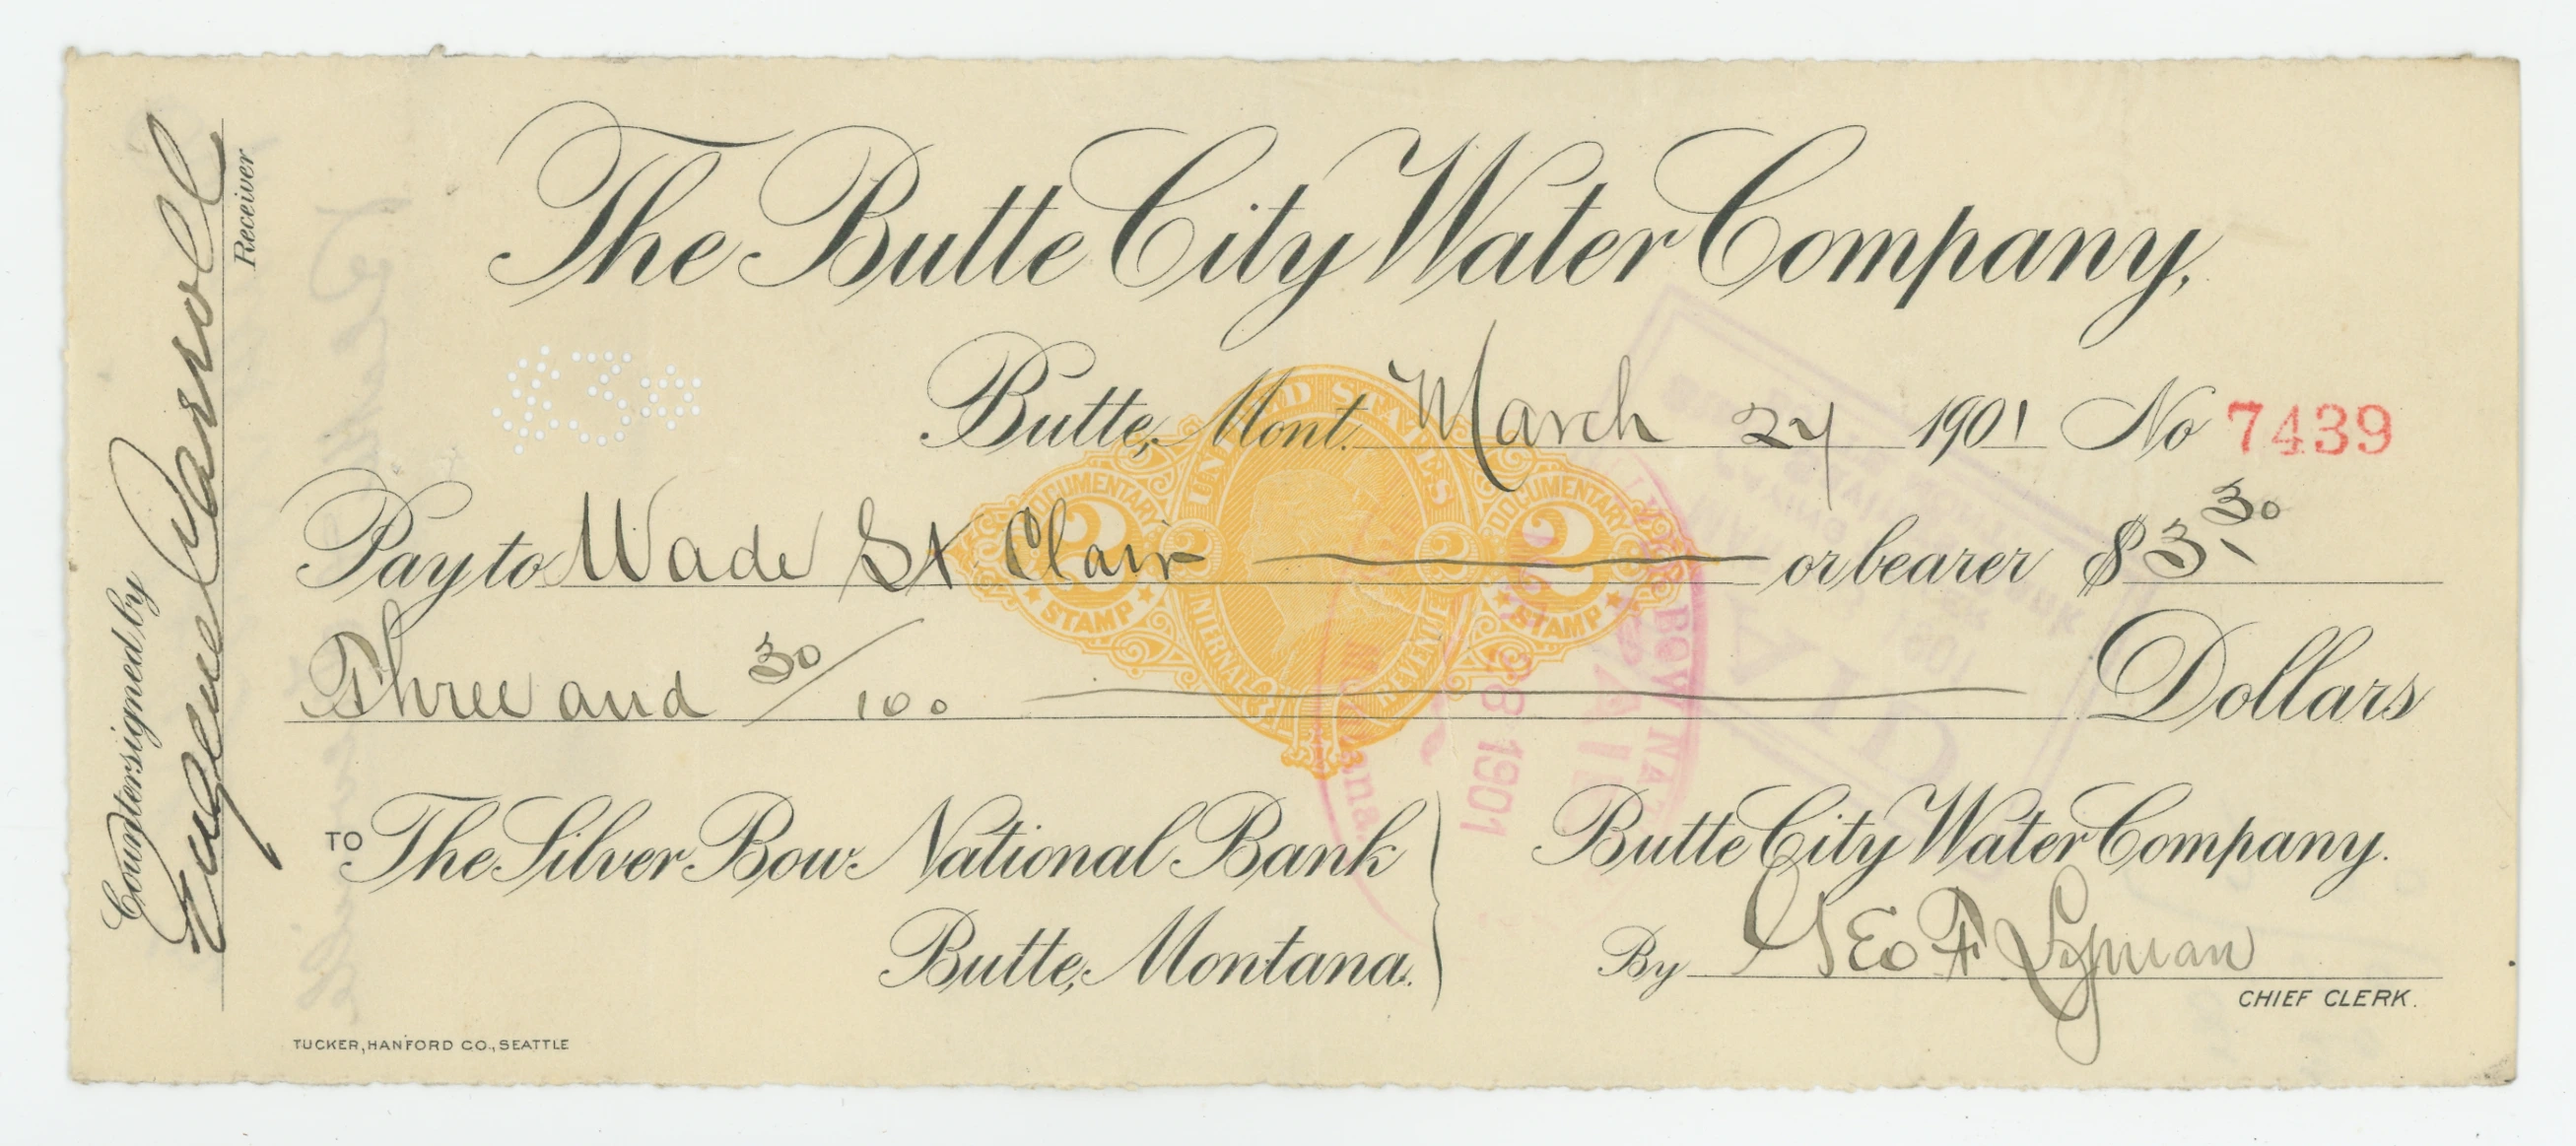 The Butte City Water Company,
$3#
Butte, Mont. March 24 1901 No 7439
Pay to Wade St Clair or bearer $3.30
Three and 30/100 Dollars
TO The Silver Bow National Bank
Butte, Montana.
Butte City Water Company.
By Geo F Lyman
CHIEF CLERK.
TUCKER, HANFORD CO., SEATTLE
Countersigned by
Eugene Carroll
Receiver
UNITED STATES
INTERNAL REVENUE
DOCUMENTARY
2
STAMP
DOCUMENTARY
2
STAMP
2
2
28 1901